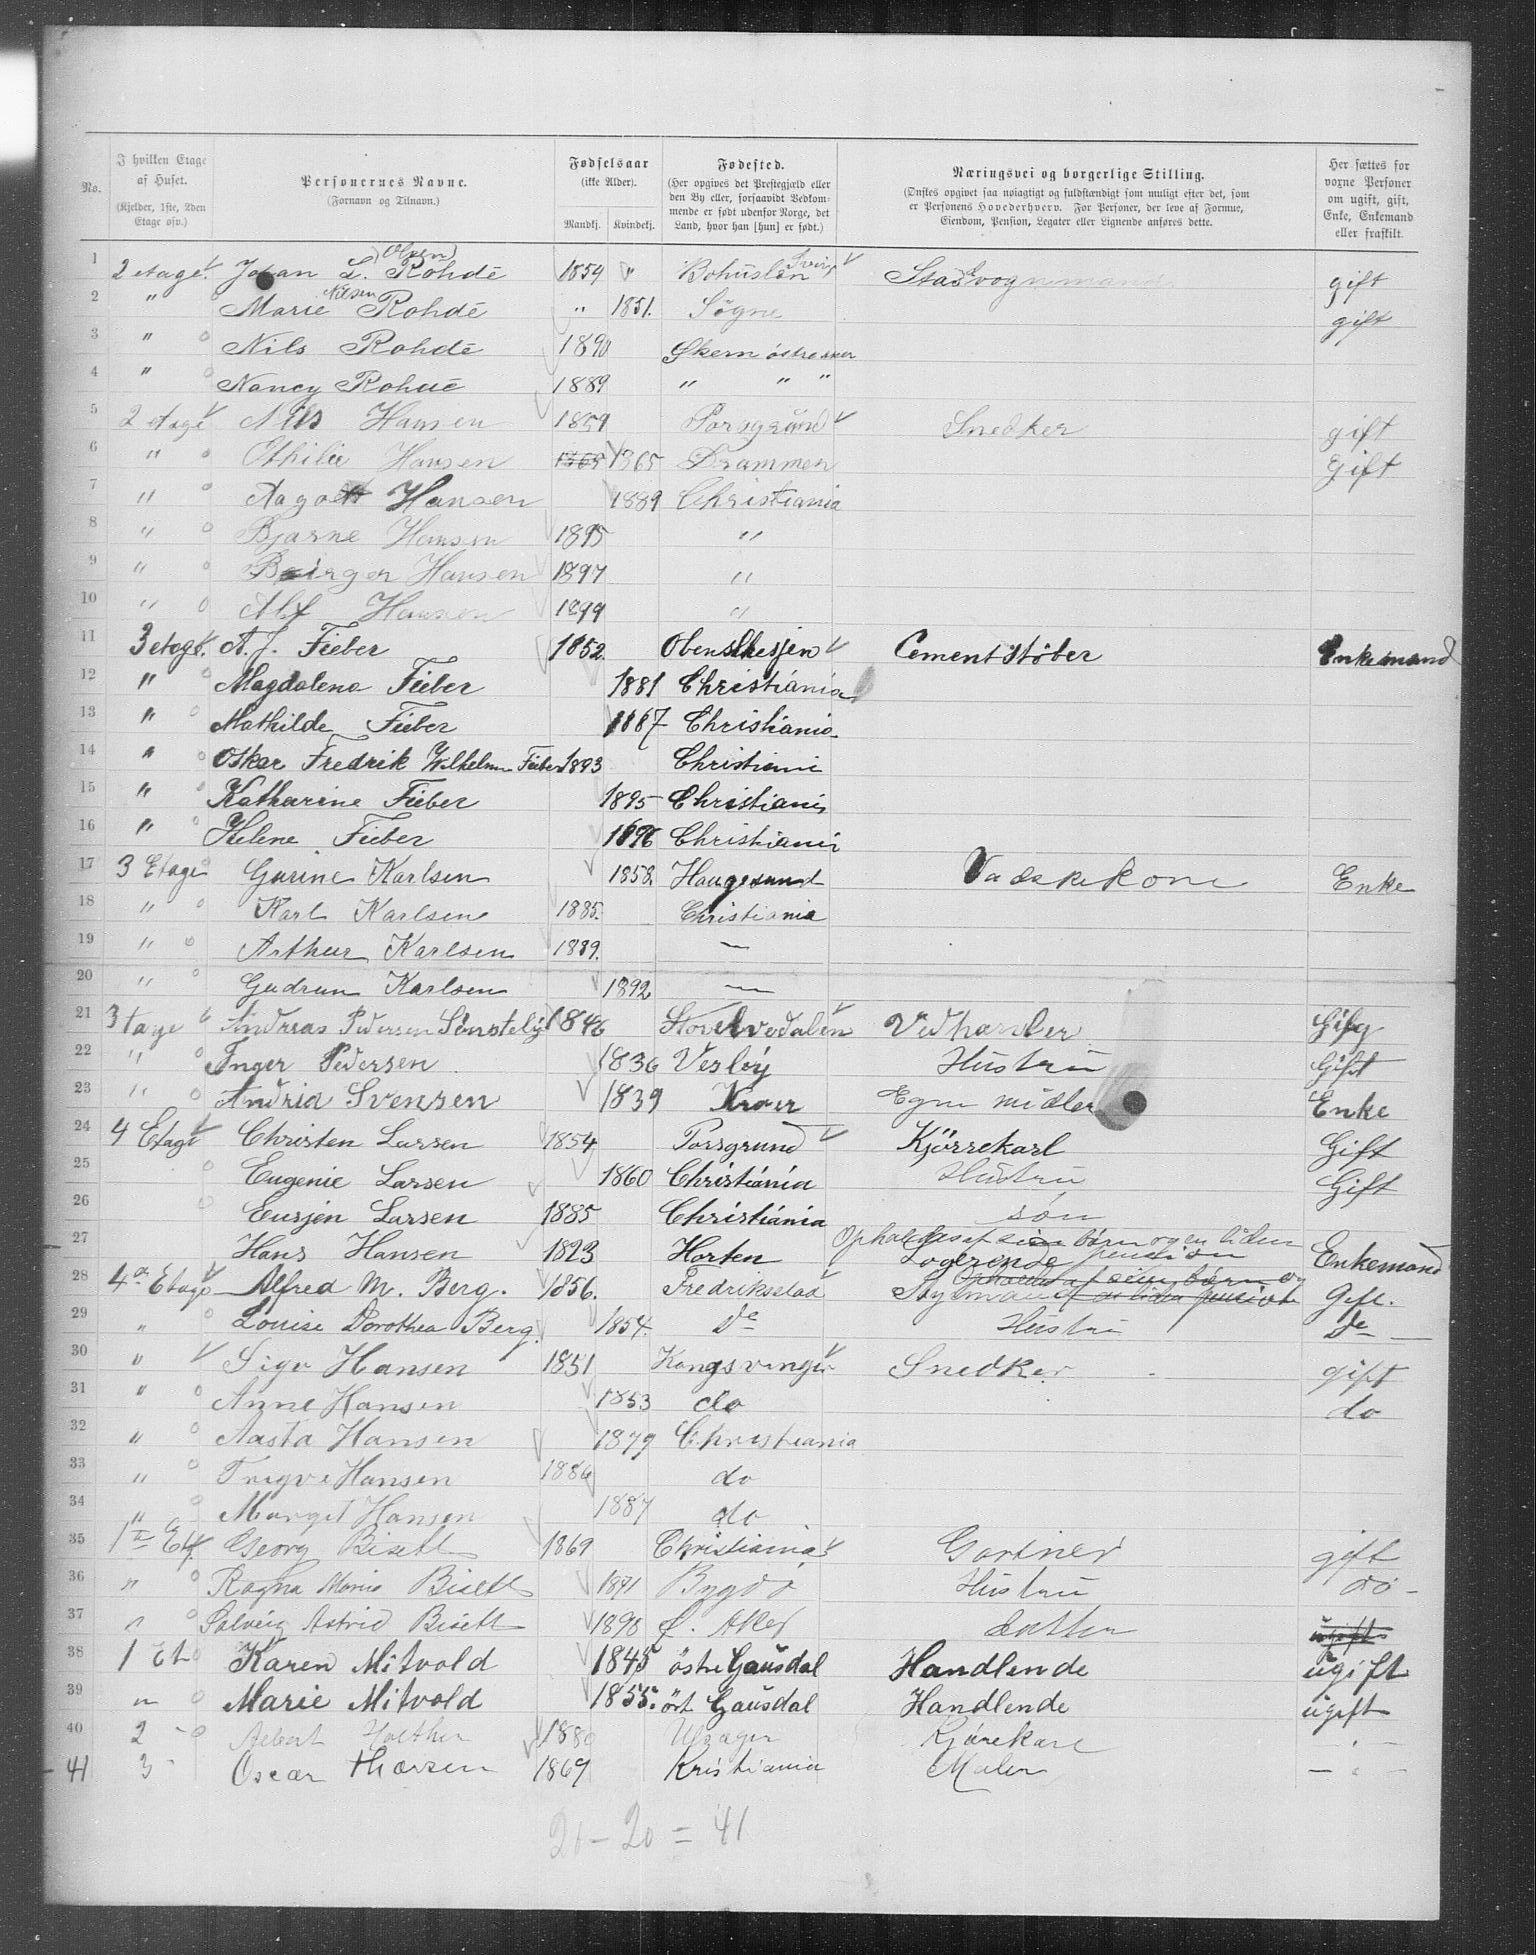 No. | I hvilken Etage af Huset. (Kjelder, 1ste, 2den Etage osv.) | Personernes Navne. (Fornavn og Tilnavn.) | Fødselsaar (ikke Alder). Mandkj. Kvindekj. | Fødested. (Her opgives det Prestegjæld eller den By eller, forsaavidt Vedkommende er født udenfor Norge, det Land, hvor han [hun] er født.) | Næringsvei og borgerlige Stilling. (Ønskes opgivet saa nøiagtigt og fuldstændigt som muligt efter det, som er Personens Hovederhverv. For Personer, der leve af Formue, Eiendom, Pension, Legater eller Lignende anføres dette. | Her sættes for voxne Personer om ugift, gift, Enke, Enkemand eller fraskilt.
1 2 etage. Johan L. (Olsen) Rohdé 1854 " Bohuslen gift
2 " Marie Nilsen Rohdé " 1851. Sögne gift
3 " Nils Rohdé 1890
4 " Nancy Rohdé 1889 " " "
5 2 etage Nils Hansen 1859 Porsgrund Snedker gift
6 " Othilie Hansen 1865 1865 Drammen Gift
7 " Aagott Hansen 1889 Christiania
8 " Bjarne Hansen 1895 "
9 " Birger Hansen 1897 "
10 " Alf Hansen 1899 "
11 3 etage. A. J. Fieber 1852. Obenslhesjen Cementstøber Enkemand
12 " Magdalena Fieber 1881 Christiania
13 " Mathilde Fieber 1887 Christiania
14 " Oskar Fredrik Wilhelm Fieber 1893 Christiani
15 " Katharine Fieber 1895 Christiania
16 " Helene Fieber 1896 Christiania
17 3 Etage Gurine Karlsen 1858. Haugesund Vaskekone Enke
18 " Karl Karlsen 1885. Christiania
19 " Arthur Karlsen 1889. —
20 " Gudrun Karlsen 1892 —
21 3 tage Andreas Pedersen Sønsteby 1846 Vedhandler Gift
22 " Inger Pedersen 1836 Vesby Hustru Gift
23 " Andria Svensen 1839 Kroer Egne midler Enke
24 4 Etage Christen Larsen 1854 Porsgrund Kjörrekarl Gift
25 Eugenie Larsen 1860 Christiánia Hustru Gift
26 Eusjen Larsen 1885 Christiánia søn
27 Hans Hansen 1823 Horten Ophaldes af sine börn og en liden pension Logerende Enkemand
28 4de Etage Alfred M. Berg. 1856. Fredriksstad Gift.
29 " Louise Dorothea Berg. 1854. De Hustru De —
30 " Hansen 1851 Kongsvinger Snedker gift
31 " Anne Hansen 1853 do do
32 " Aasta Hansen 1879 Christiania
33 " Trigve Hansen 1886 do
34 " Margit Hansen 1887 do
35 1ste Etg. Georg Bisett 1869 Christiania Gartner gift
36 " Ragna Maria Bisett 1871 Bygdö Hustru do -
37 " Solveig Astrid Bisett 1890 f. Aker datter ugift
38 1 Et Karen Mitvold 1845 östre Gausdal Handlende ugift
39 " Marie Mitvold 1855. öst Gausdal Handlende ugift
40 2 - Albert Holther 1880 Kjørekarl — " —
41 3 - Oscar Thorsen 1869 Kristiania Maler — " —
21 - 20 = 41